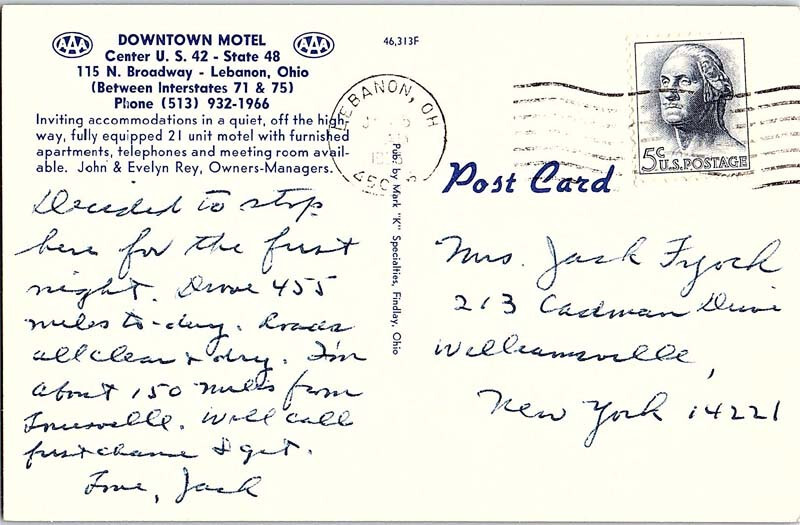 AAA DOWNTOWN MOTEL AAA
Center U. S. 42 - State 48
115 N. Broadway - Lebanon, Ohio
(Between Interstates 71 & 75)
Phone (513) 932-1966
Inviting accommodations in a quiet, off the high-
way, fully equipped 21 unit motel with furnished
apartments, telephones and meeting room avail-
able. John & Evelyn Rey, Owners-Managers.
Decided to stop
here for the first
night. Drove 455
miles to-day. Roads
all clear & dry. I'm
about 150 miles from
Louisville. Will call
first chance I get.
Love, Jack
46,313F
Pub. by Mark "K" Specialties, Findlay, Ohio
LEBANON, OH
5c U.S. POSTAGE
Post Card
Mrs. Jack Fryock
213 Cadman Drive
Williamsville,
New York 14221